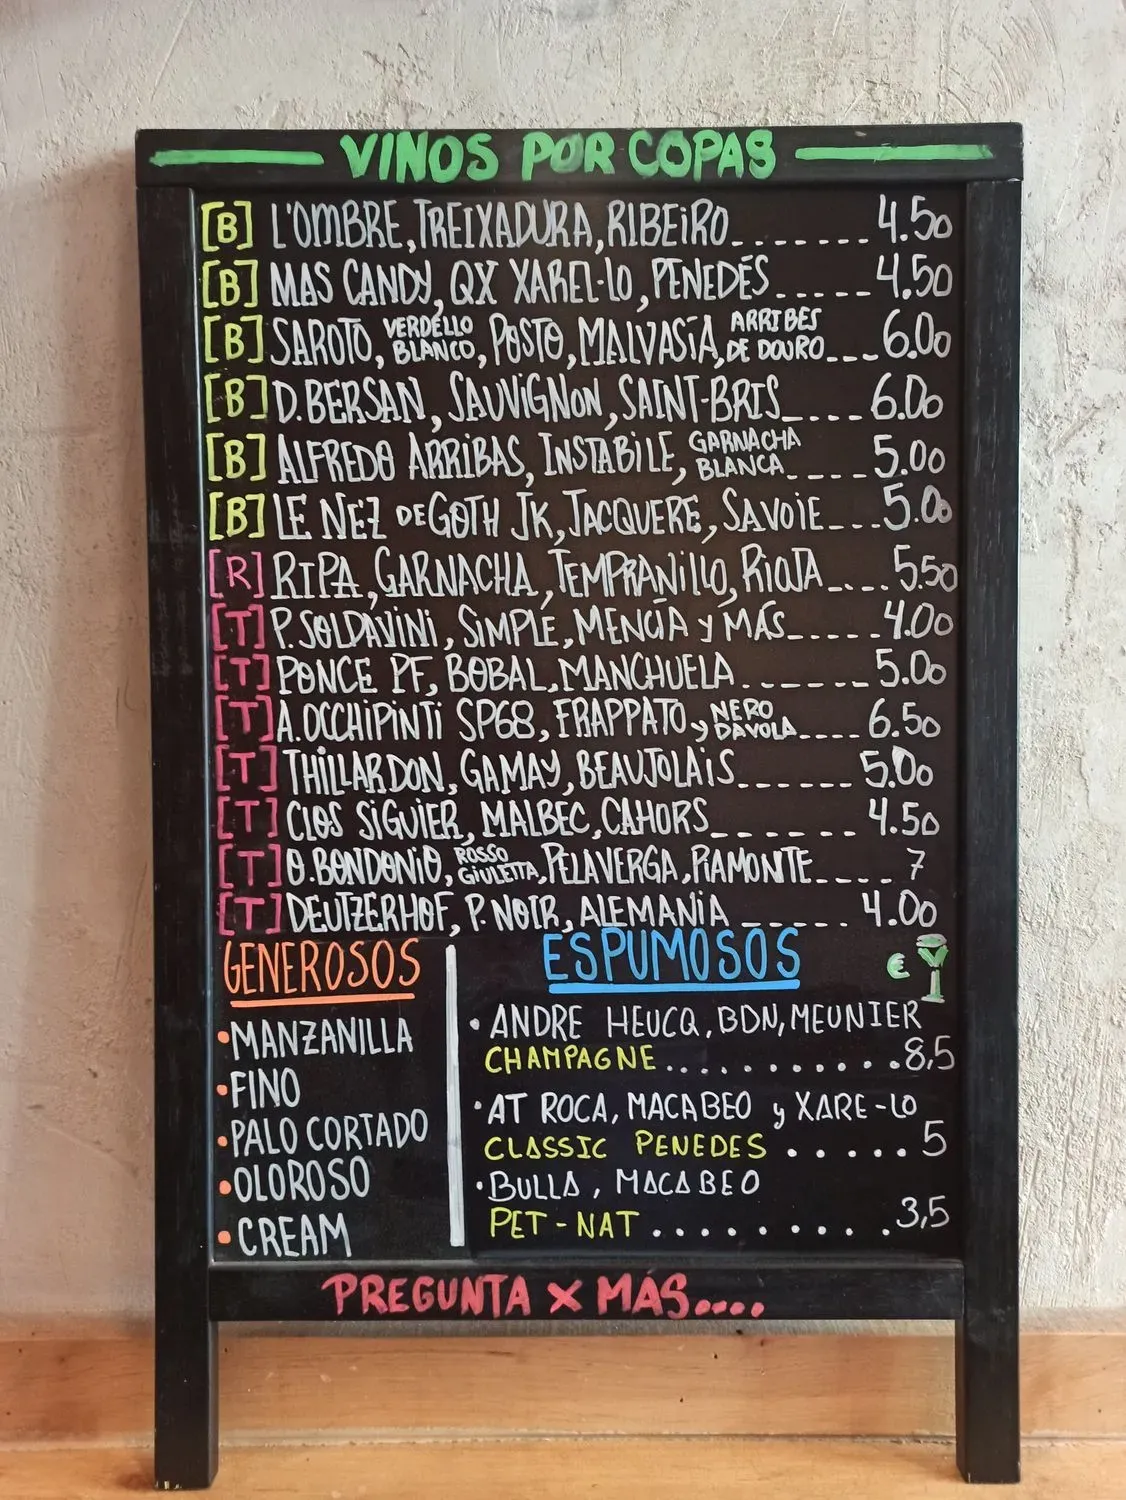 VINOS POR COPAS
[B] L'OMBRE, TREIXADURA, RIBEIRO_______ 4.50
[B] MAS CANDY, QX XAREL·LO, PENEDÉS_____ 4.50
[B] SAROTO, VERDELLO BLANCO, POSTO, MALVASÍA, ARRIBES DE DOURO___ 6.00
[B] D. BERSAN, SAUVIGNON, SAINT-BRIS____ 6.00
[B] ALFREDO ARRIBAS, INSTABILE, GARNACHA BLANCA____ 5.00
[B] LE NEZ DE GOTH JK, JACQUERE, SAVOIE___ 5.00
[R] RIPA, GARNACHA, TEMPRANILLO, RIOJA____ 5.50
[T] P. SOLDAVINI, SIMPLE, MENCÍA Y MÁS_____ 4.00
[T] PONCE PF, BOBAL, MANCHUELA_______ 5.00
[T] A. OCCHIPINTI SP68, FRAPPATO Y NERO DAVOLA____ 6.50
[T] THILLARDON, GAMAY, BEAUJOLAIS______ 5.00
[T] CLOS SIGUIER, MALBEC, CAHORS_______ 4.50
[T] O. BONDONIO, ROSSO GIULETTA, PELAVERGA, PIAMONTE____ 7
[T] DEUTZERHOF, P. NOIR, ALEMANIA _____ 4.00
GENEROSOS
•MANZANILLA
•FINO
•PALO CORTADO
•OLOROSO
•CREAM
ESPUMOSOS
€
•ANDRE HEUCQ, BDN, MEUNIER
CHAMPAGNE...........8,5
•AT ROCA, MACABEO y XARE-LO
CLASSIC PENEDES.....5
•BULLA, MACABEO
PET-NAT.........3,5
PREGUNTA X MAS....